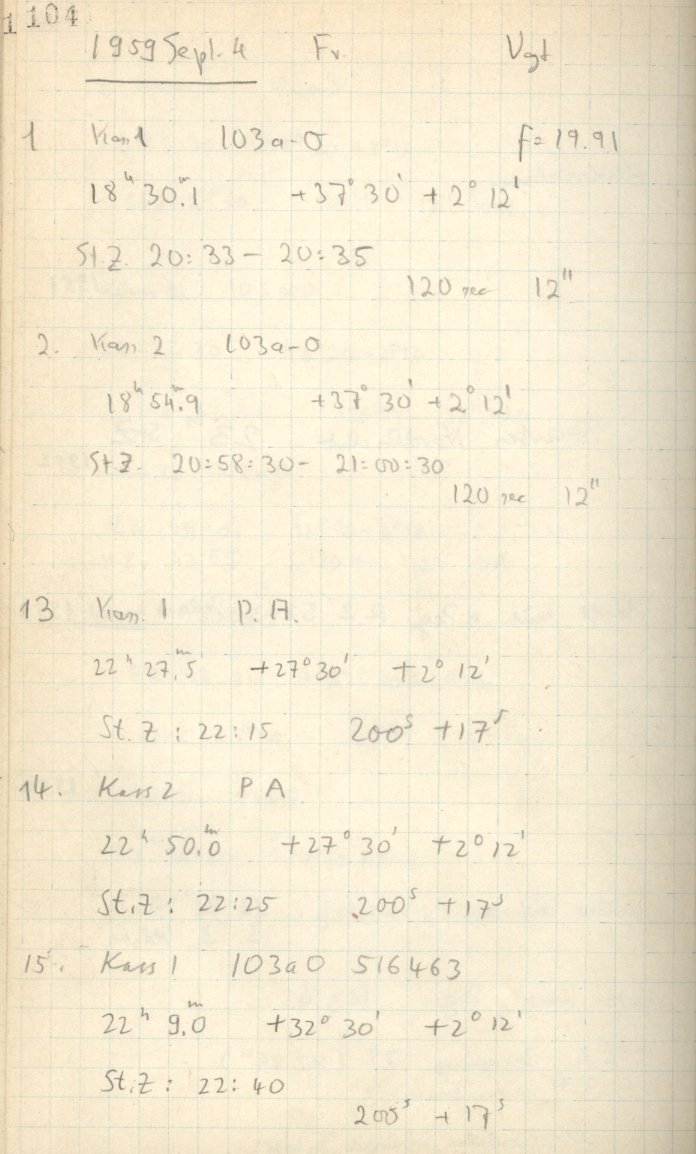 1 104
1959 Sept. 4 Fr. Vogt
1 Kass 1 103a-O f=19.91
18h 30m.1 +37° 30' +2° 12'
St.Z. 20:33 - 20:35
120 sec 12"
2. Kass 2 103a-O
18h 54m.9 +37° 30' +2° 12'
St Z. 20:58:30 - 21:00:30
120 sec 12"
13 Kass. 1 P. A.
22h 27m.5 +27° 30' +2° 12'
St. Z : 22:15 200s +17s
14. Kass 2 P A
22h 50m.0 +27° 30' +2° 12'
St.Z : 22:25 200s +17s
15. Kass 1 103aO 516463
22h 9m.0 +32° 30' +2° 12'
St.Z : 22:40
200s +17s